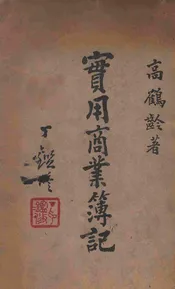 高鶴齡著
實用商業簿記